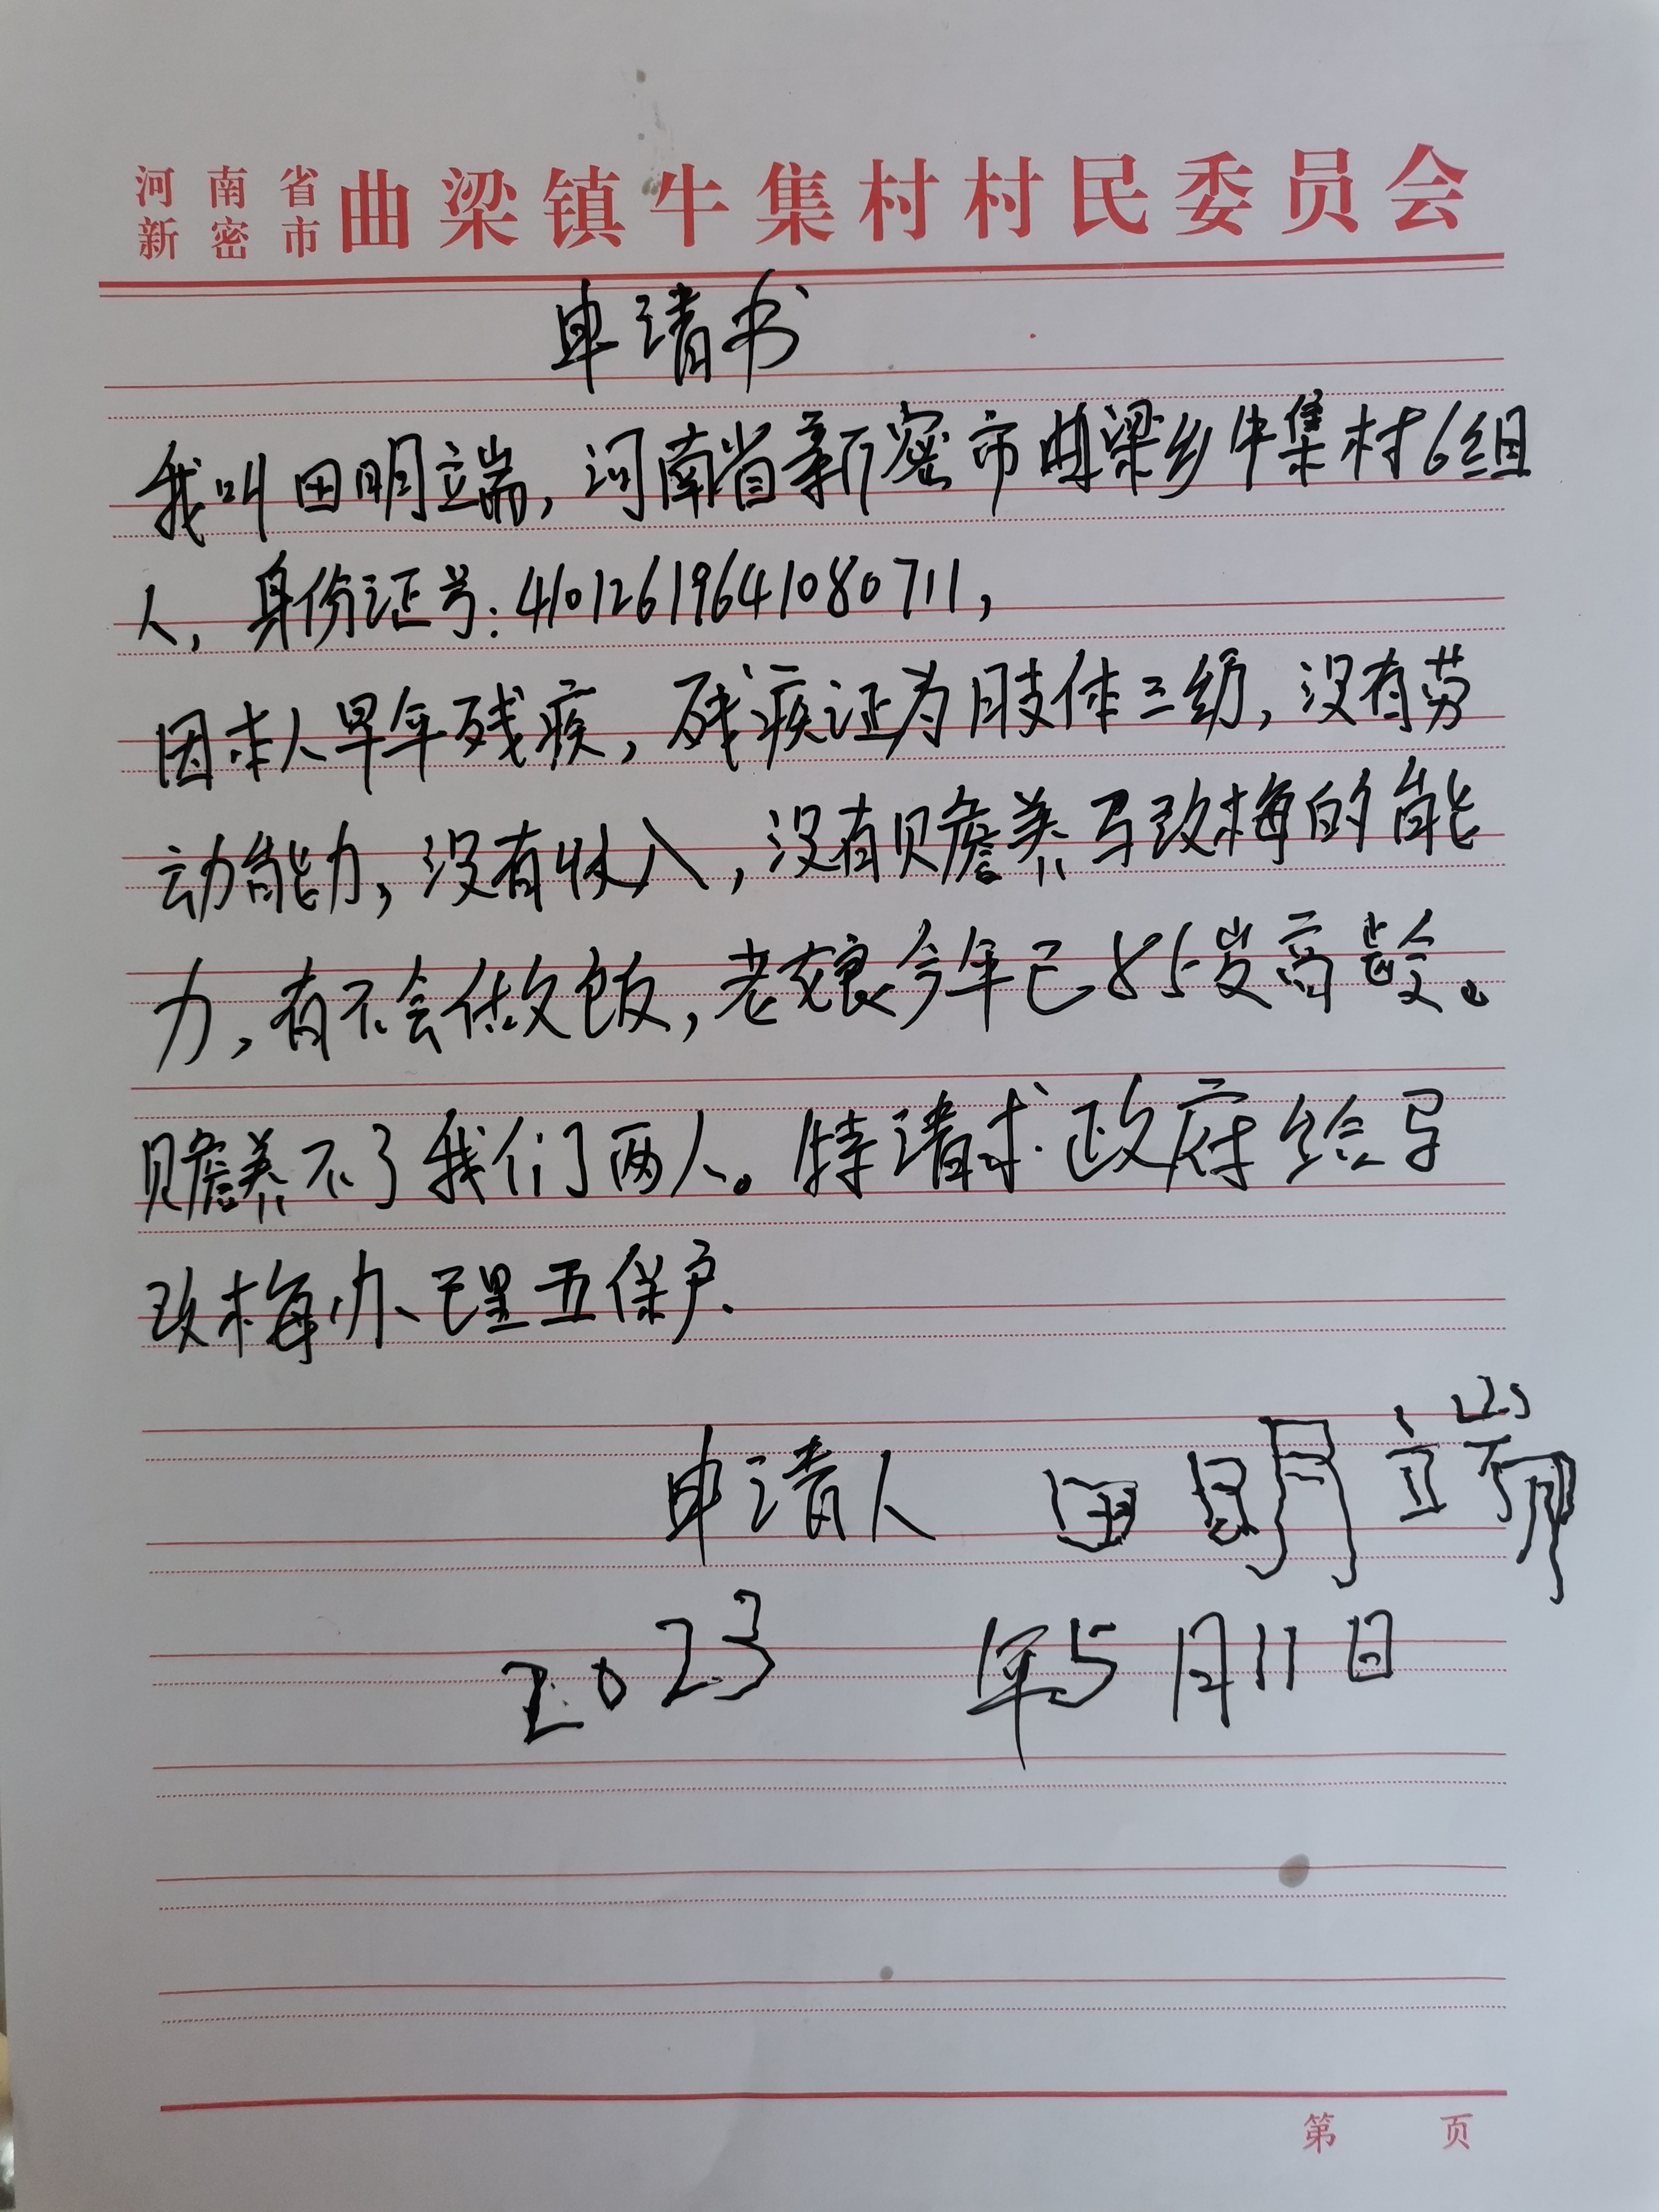 河南省
新密市 曲梁镇牛集村村民委员会
申请书
我叫田明立端，河南省新密市曲梁乡牛集村6组
人，身份证号：41012619641080711，
因本人早年残疾，残疾证为肢体三级，没有劳
动能力，没有收入，没有赡养马改梅的能
力，有不会做饭，老娘今年已85岁高龄。
赡养不了我们两人。特请求政府给马
改梅办理五保户.
申请人 田明立端
2023 年5月11日
第 页